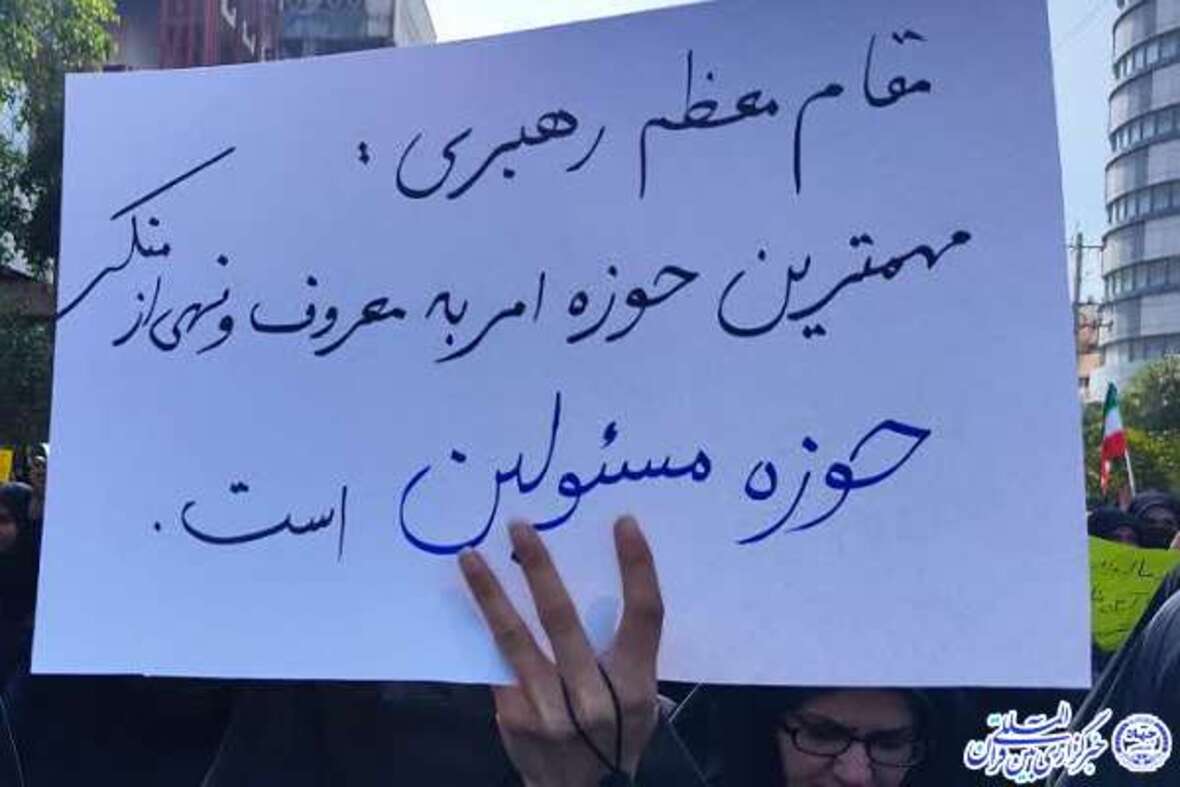 مقام معظم رهبری :
مهمترین حوزه امر به معروف و نهی از منکر
حوزه مسئولین است .
خبرگزاری بین المللی قرآن